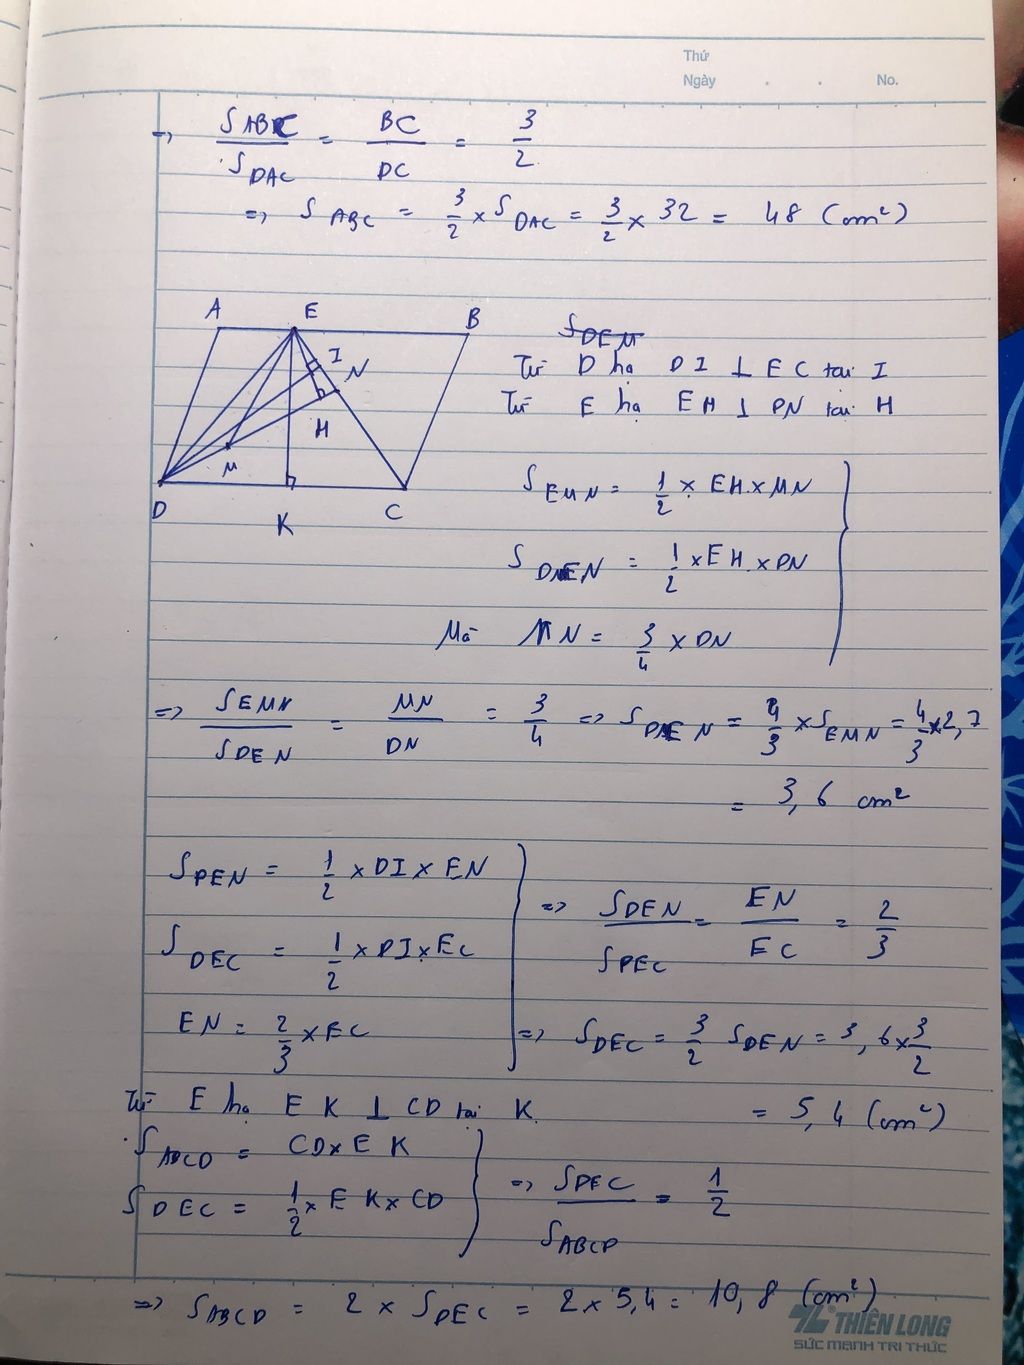 Thứ
Ngày . . No.
=> S ABC / S DAC = BC / DC = 3/2
=> S ABC = 3/2 x S DAC = 3/2 x 32 = 48 (cm²)
A E B
I N
H
M
D K C
S DEM
Từ D hạ DI ⊥ EC tại I
Từ E hạ EH ⊥ DN tại H
S EMN = 1/2 x EH x MN
S DEN = 1/2 x EH x DN
Mà MN = 3/4 x DN
=> S EMN / S DEN = MN / DN = 3/4 => S DEN = 4/3 x S EMN = 4/3 x 2,7
= 3,6 cm²
S DEN = 1/2 x DI x EN
=> S DEN / S DEC = EN / EC = 2/3
S DEC = 1/2 x DI x EC
EN = 2/3 x EC
=> S DEC = 3/2 S DEN = 3,6 x 3/2
Từ E hạ EK ⊥ CD tại K.
= 5,4 (cm²)
S ABCD = CD x EK
S DEC = 1/2 x EK x CD
=> S DEC / S ABCD = 1/2
=> S ABCD = 2 x S DEC = 2 x 5,4 = 10,8 (cm²)
THIÊN LONG
SỨC MẠNH TRI THỨC